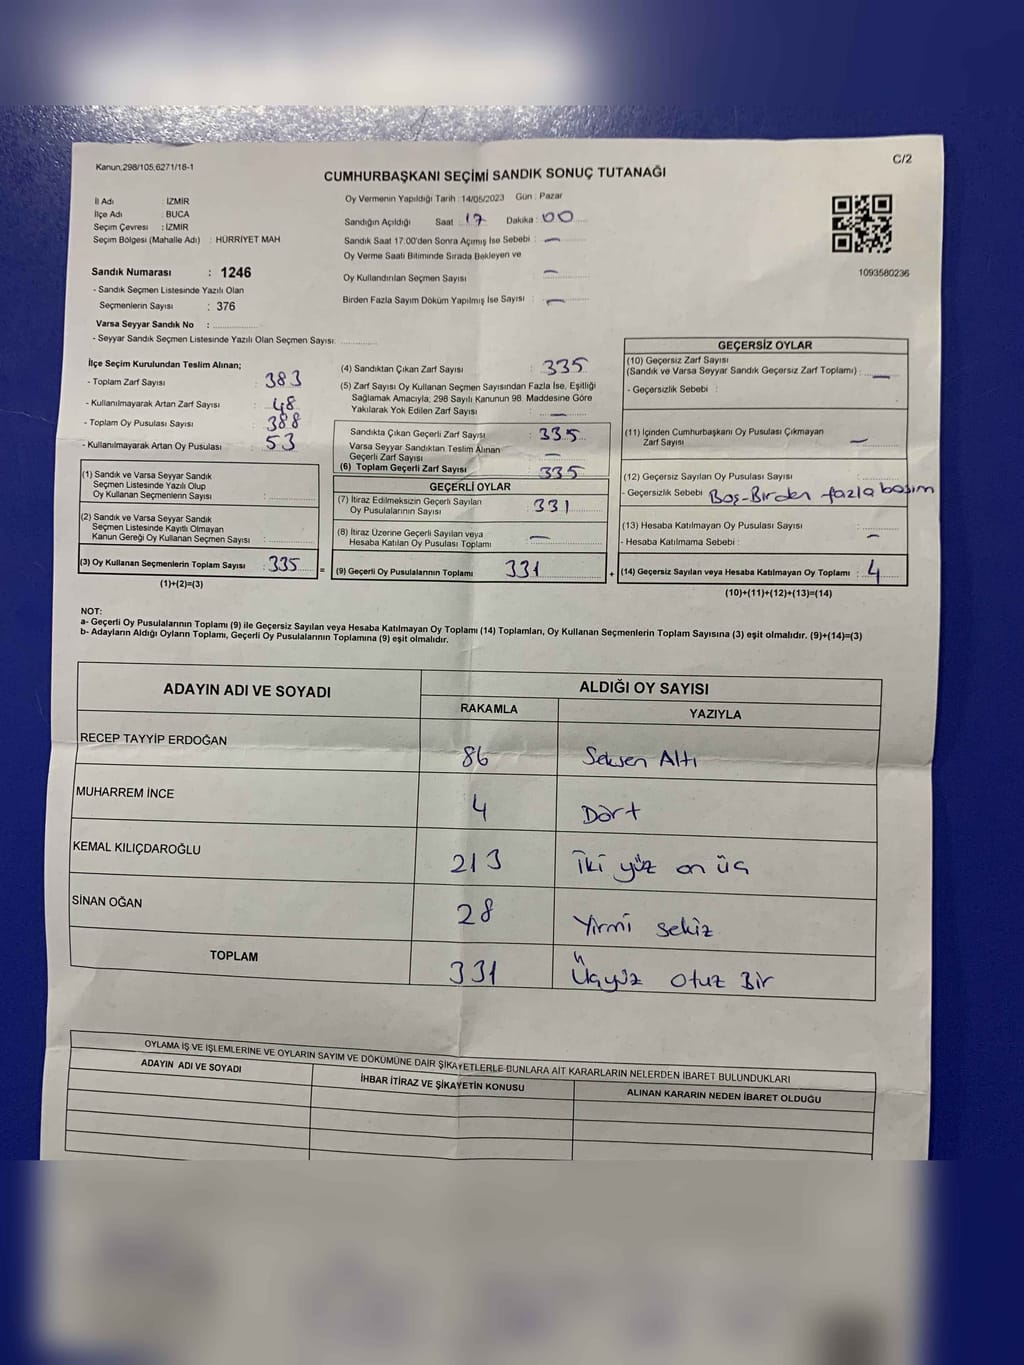 Kanun,298/105,6271/18-1
C/2
CUMHURBAŞKANI SEÇİMİ SANDIK SONUÇ TUTANAĞI
İl Adı : İZMİR
İlçe Adı : BUCA
Seçim Çevresi : İZMİR
Seçim Bölgesi (Mahalle Adı) : HÜRRİYET MAH
Sandık Numarası : 1246
- Sandık Seçmen Listesinde Yazılı Olan
Seçmenlerin Sayısı : 376
Varsa Seyyar Sandık No :
- Seyyar Sandık Seçmen Listesinde Yazılı Olan Seçmen Sayısı:
Oy Vermenin Yapıldığı Tarih : 14/05/2023 Gün : Pazar
Sandığın Açıldığı Saat : 17 Dakika : 00
Sandık Saat 17:00'den Sonra Açımış İse Sebebi : —
Oy Verme Saati Bitiminde Sırada Bekleyen ve
Oy Kullandırılan Seçmen Sayısı —
Birden Fazla Sayım Döküm Yapılmış İse Sayısı : —
1093580236
İlçe Seçim Kurulundan Teslim Alınan;
- Toplam Zarf Sayısı : 383
- Kullanılmayarak Artan Zarf Sayısı : 48
- Toplam Oy Pusulası Sayısı : 388
- Kullanılmayarak Artan Oy Pusulası : 53
(1) Sandık ve Varsa Seyyar Sandık
Seçmen Listesinde Yazılı Olup
Oy Kullanan Seçmenlerin Sayısı :
(2) Sandık ve Varsa Seyyar Sandık
Seçmen Listesinde Kayıtlı Olmayan
Kanun Gereği Oy Kullanan Seçmen Sayısı :
(3) Oy Kullanan Seçmenlerin Toplam Sayısı : 335
(1)+(2)=(3)
=
(4) Sandıktan Çıkan Zarf Sayısı : 335
(5) Zarf Sayısı Oy Kullanan Seçmen Sayısından Fazla İse, Eşitliği
Sağlamak Amacıyla; 298 Sayılı Kanunun 98. Maddesine Göre
Yakılarak Yok Edilen Zarf Sayısı : —
Sandıkta Çıkan Geçerli Zarf Sayısı : 335
Varsa Seyyar Sandıktan Teslim Alınan
Geçerli Zarf Sayısı : —
(6) Toplam Geçerli Zarf Sayısı : 335
GEÇERLİ OYLAR
(7) İtiraz Edilmeksizin Geçerli Sayılan
Oy Pusulalarının Sayısı : 331
(8) İtiraz Üzerine Geçerli Sayılan veya
Hesaba Katılan Oy Pusulası Toplamı : —
(9) Geçerli Oy Pusulalarının Toplamı : 331
+
GEÇERSİZ OYLAR
(10) Geçersiz Zarf Sayısı
(Sandık ve Varsa Seyyar Sandık Geçersiz Zarf Toplamı) : —
- Geçersizlik Sebebi :
(11) İçinden Cumhurbaşkanı Oy Pusulası Çıkmayan
Zarf Sayısı —
(12) Geçersiz Sayılan Oy Pusulası Sayısı :
- Geçersizlik Sebebi Boş-Birden fazla basım
(13) Hesaba Katılmayan Oy Pusulası Sayısı :
- Hesaba Katılmama Sebebi : —
(14) Geçersiz Sayılan veya Hesaba Katılmayan Oy Toplamı : 4
(10)+(11)+(12)+(13)=(14)
NOT:
a- Geçerli Oy Pusulalarının Toplamı (9) ile Geçersiz Sayılan veya Hesaba Katılmayan Oy Toplamı (14) Toplamları, Oy Kullanan Seçmenlerin Toplam Sayısına (3) eşit olmalıdır. (9)+(14)=(3)
b- Adayların Aldığı Oyların Toplamı, Geçerli Oy Pusulalarının Toplamına (9) eşit olmalıdır.
ADAYIN ADI VE SOYADI ALDIĞI OY SAYISI
RAKAMLA YAZIYLA
RECEP TAYYİP ERDOĞAN 86 Seksen Altı
MUHARREM İNCE 4 Dört
KEMAL KILIÇDAROĞLU 213 İki yüz on üç
SİNAN OĞAN 28 Yirmi sekiz
TOPLAM 331 Üçyüz otuz Bir
OYLAMA İŞ VE İŞLEMLERİNE VE OYLARIN SAYIM VE DÖKÜMÜNE DAİR ŞİKAYETLERLE BUNLARA AİT KARARLARIN NELERDEN İBARET BULUNDUKLARI
ADAYIN ADI VE SOYADI İHBAR İTİRAZ VE ŞİKAYETİN KONUSU ALINAN KARARIN NEDEN İBARET OLDUĞU